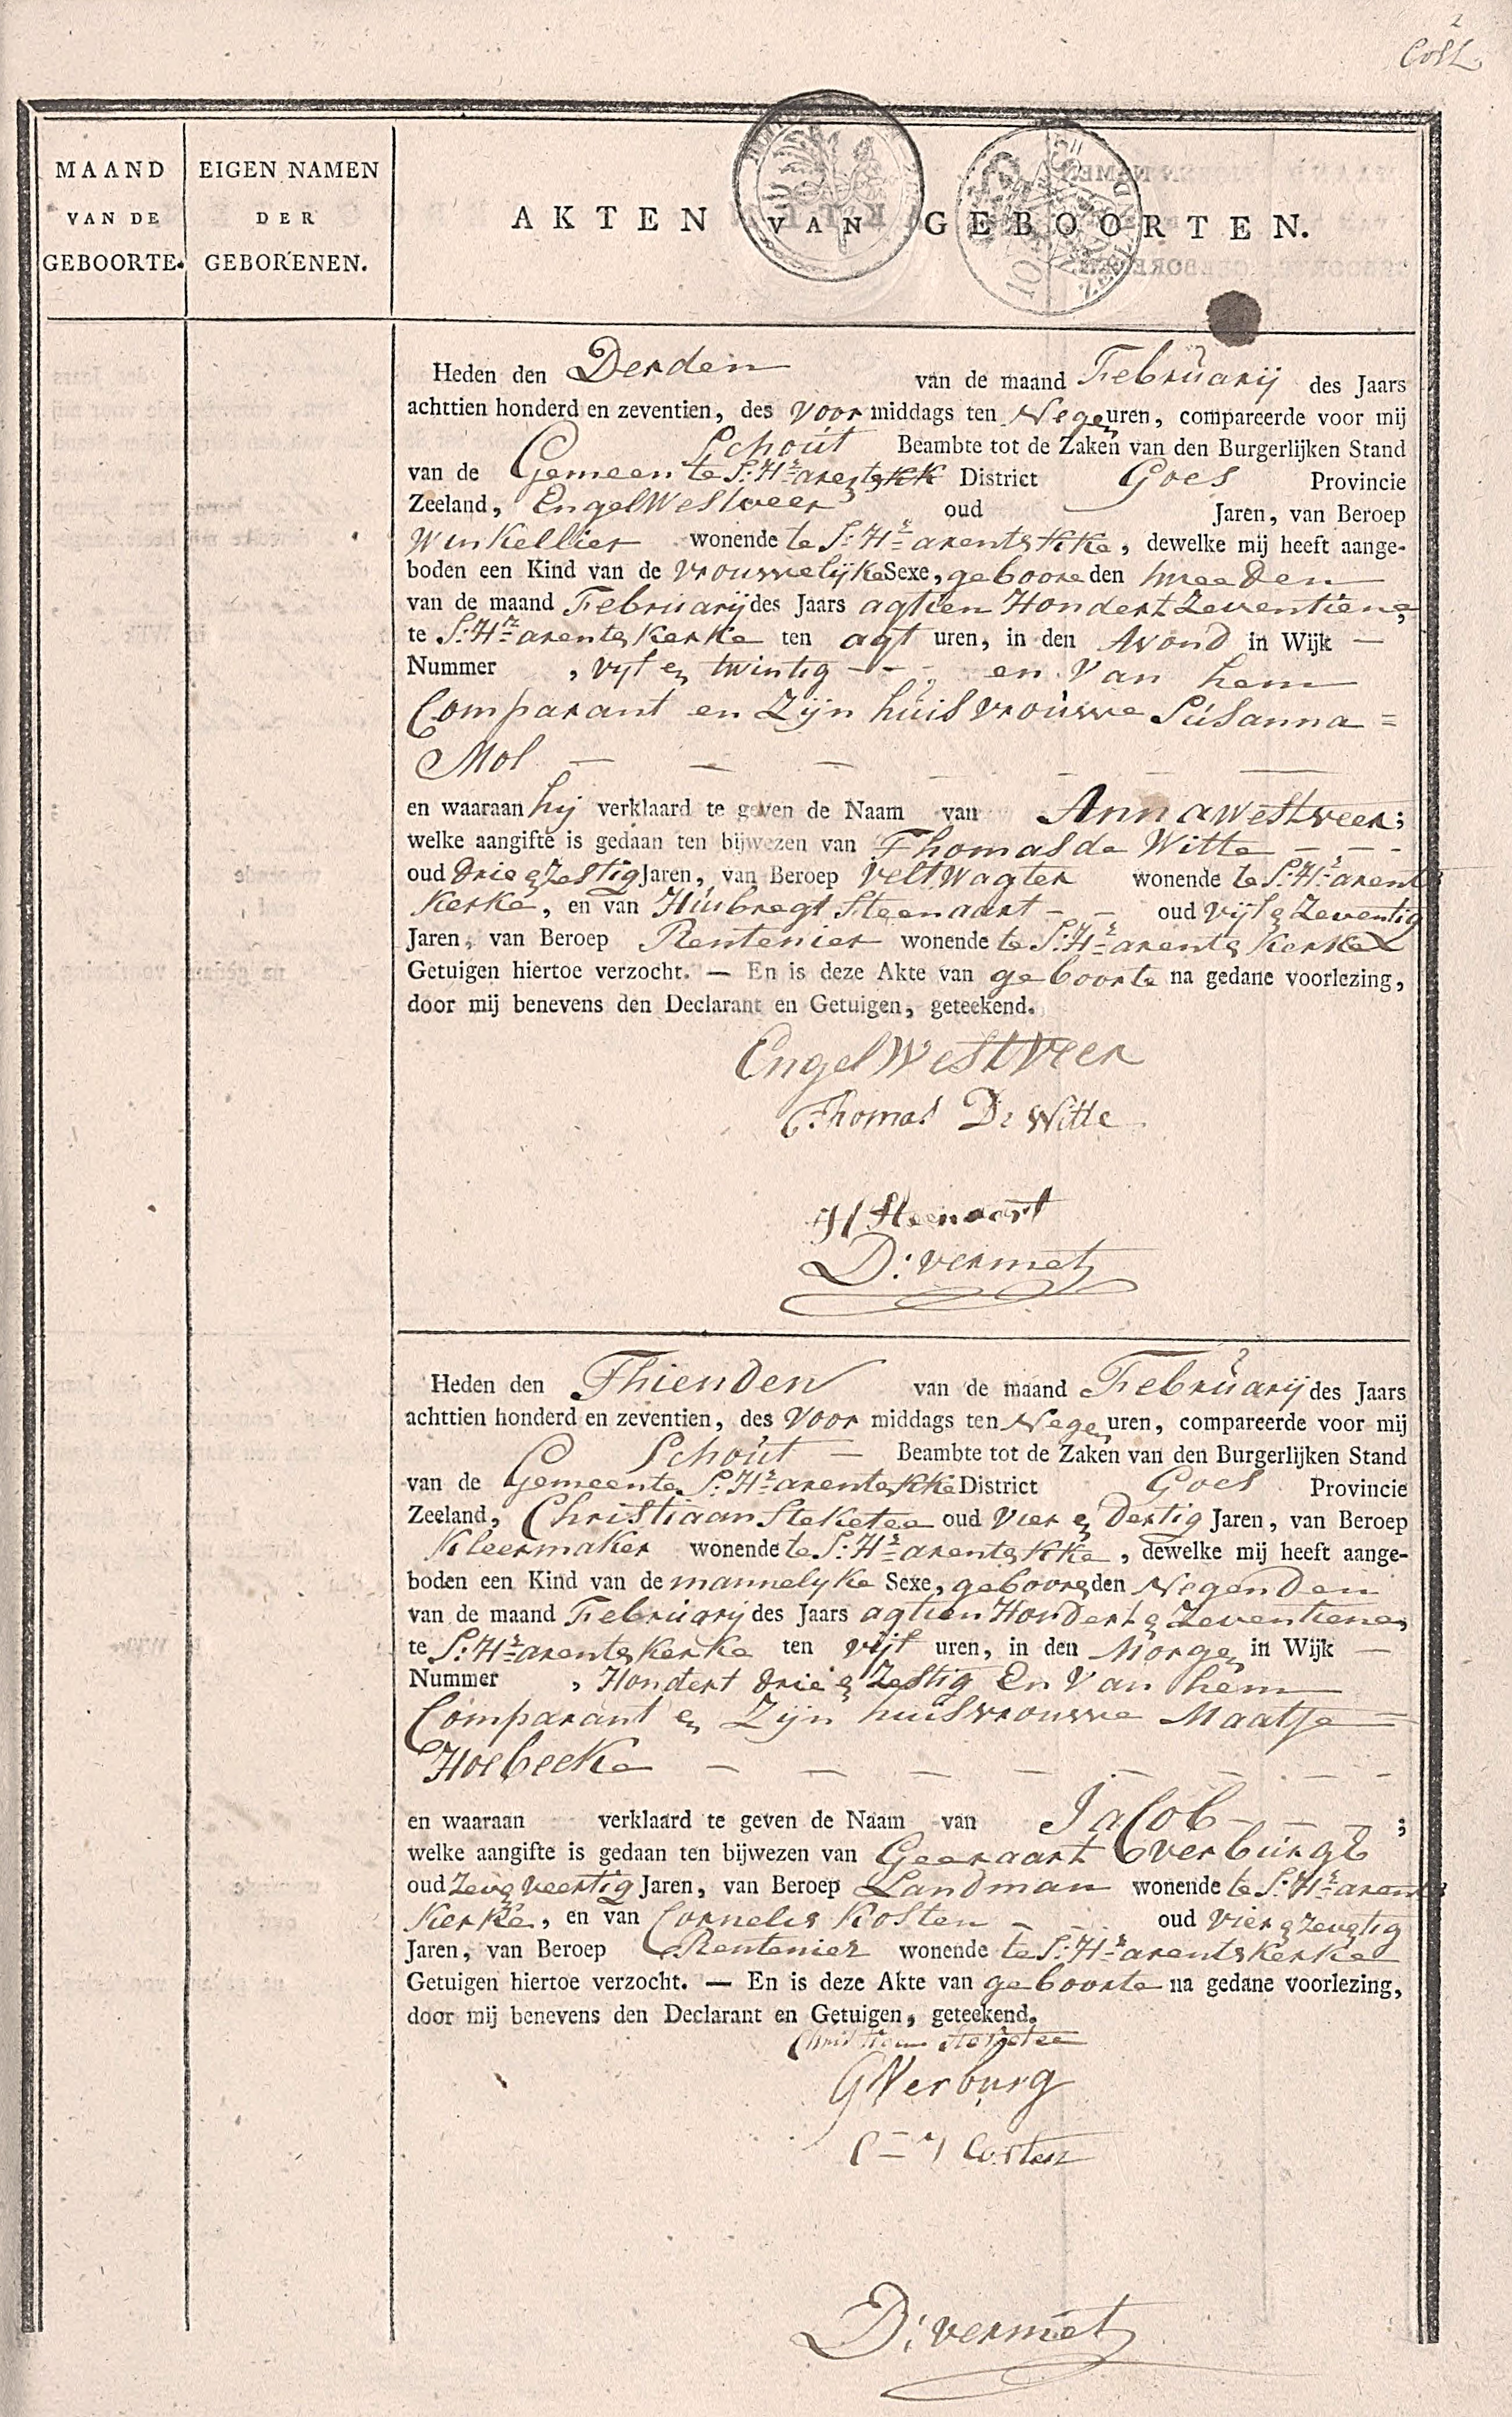 2
Coll.
MAAND
VAN DE
GEBOORTE.
EIGEN NAMEN
DER
GEBORENEN.
AKTEN VAN GEBOORTEN.
Heden den Derden van de maand Februarij des Jaars
achttien honderd en zeventien, des Voor middags ten Negen uren, compareerde voor mij
Schout Beambte tot de Zaken van den Burgerlijken Stand
van de Gemeente S: Hr: arentskk District Goes Provincie
Zeeland, Engel Westveer oud Jaren, van Beroep
Winkellier wonende te S: Hr: arentskke, dewelke mij heeft aange-
boden een Kind van de vrouwelijke Sexe, geboore den tweeden
van de maand Februarij des Jaars agtien Hondert Zeventiene,
te S: Hr: arents Kerke ten agt uren, in den Avond in Wijk —
Nummer , vijf en twintig - - - en Van hem
Comparant en Zijn huisvrouwe Susanna =
Mol — — — — — — —
en waaraan hij verklaard te geven de Naam van Anna Westveer;
welke aangifte is gedaan ten bijwezen van Thomas de Witte - - -
oud drie en Zestig Jaren, van Beroep Veltwagter wonende te S: Hr: arents
Kerke, en van Huibregt Steenaart - - oud vijf en Zeventig
Jaren, van Beroep Rentenier wonende te S: Hr: arents Kerke
Getuigen hiertoe verzocht. — En is deze Akte van geboorte na gedane voorlezing,
door mij benevens den Declarant en Getuigen, geteekend.
Engel Westveer
Thomas De Witte
H Steenaart
D: vermet
Heden den Thienden van de maand Februarij des Jaars
achttien honderd en zeventien, des Voor middags ten Negen uren, compareerde voor mij
Schout — Beambte tot de Zaken van den Burgerlijken Stand
van de Gemeente S: Hr: arentskke District Goes Provincie
Zeeland, Christiaan Steketee oud Vier en Dertig Jaren, van Beroep
Kleermaker wonende te S: Hr: arentskke, dewelke mij heeft aange-
boden een Kind van de mannelyke Sexe, geboore den Negenden
van de maand Februarij des Jaars agtien Hondert en Zeventiene,
te S: Hr: arents Kerke ten vijf uren, in den Morgen in Wijk —
Nummer , Hondert drie en Zestig En Van hem
Comparant en Zijn huisvrouwe Maatje =
Hoebeeke — — — — — — - -
en waaraan verklaard te geven de Naam van Jacob - — - ;
welke aangifte is gedaan ten bijwezen van Geeraart Verburgt
oud Zeven Veertig Jaren, van Beroep Landman wonende te S: Hr: arents
Kerke, en van Cornelis Kosten - - oud Vier en Zeventig
Jaren, van Beroep Rentenier wonende te S: Hr: arents Kerke
Getuigen hiertoe verzocht. — En is deze Akte van geboorte na gedane voorlezing,
door mij benevens den Declarant en Getuigen, geteekend.
Christiaan Steketee
G Verburg
Costen
D: vermet